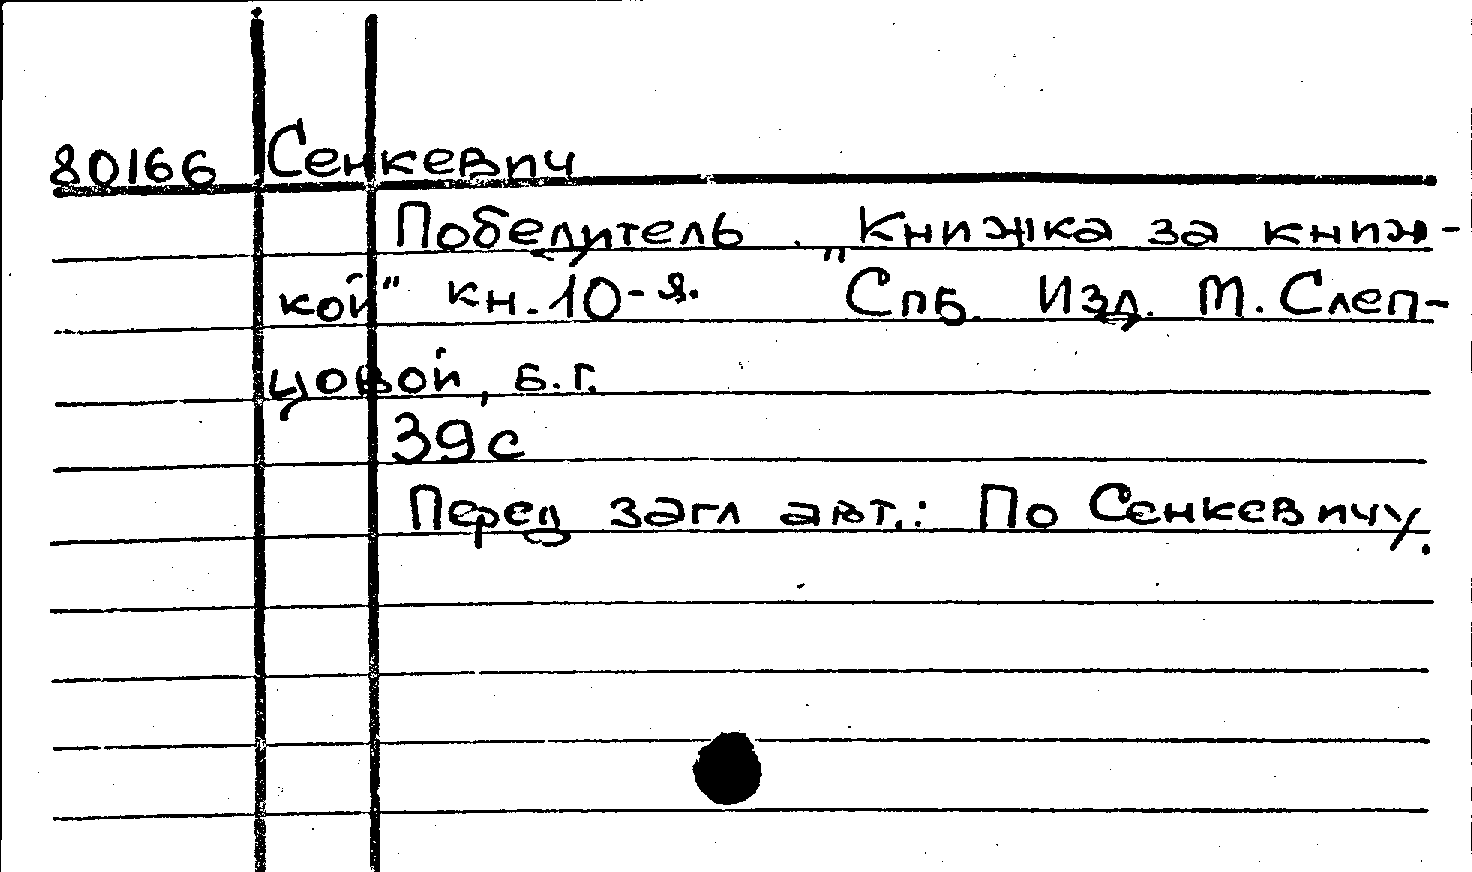 80166 Сенкевич
Победитель. „Книжка за книж-
кой" кн. 10-я. Спб. Изд. М. Слеп-
цовой, б.г.
39 с
Перед загл авт.: По Сенкевичу.